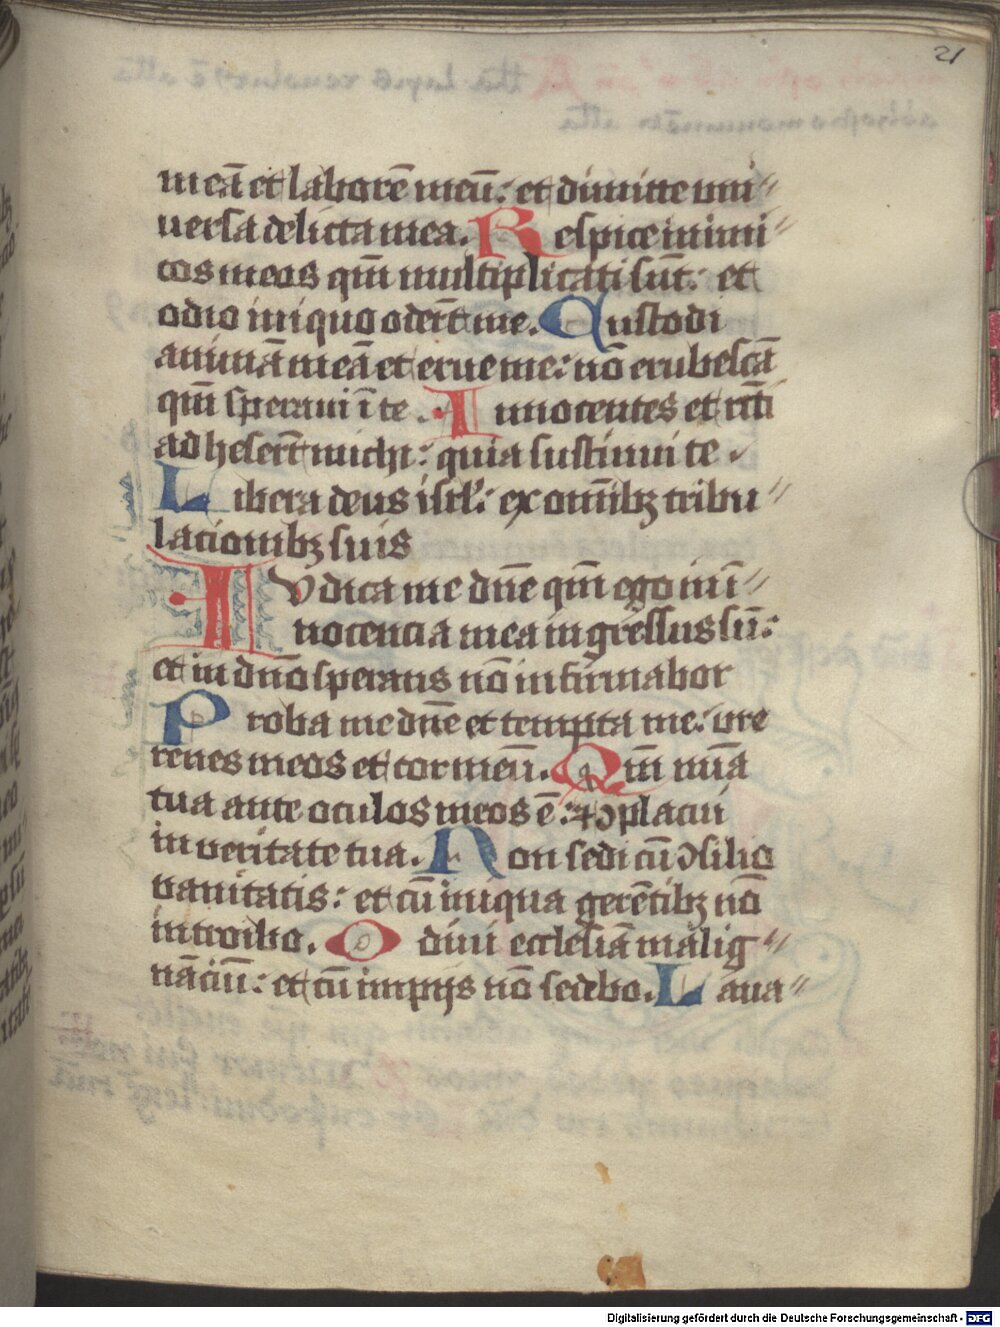 21
meā et laborē meū: et dimitte uni〃
versa delicta mea. Respice inimi〃
cos meos qm̄ multiplicati sūt: et
odio iniquo oder̄t me. Custodi
animā meā et erue me: nō erubescā
qm̄ speravi ī te. Innocentes et rc̄ti
adheser̄t michi: quia sustinui te.
Libera deus isrl̓: ex omībꝫ tribu〃
lacionibꝫ suis
IUdica me dn̄e qm̄ ego in ī〃
nocencia mea ingressus sū:
et in dn̄o sperans nō infirmabor
Proba me dn̄e et tempta me: ure
renes meos et cor meū. Qm̄ mīa
tua ante oculos meos ē: ⁊ ↄplacui
in veritate tua. Non sedi cū ↄsilio
vanitatis: et cū iniqua gerētibꝫ nō
introibo. Odivi ecclesiā malig〃
nāciū: et cū impijs nō sedebo. Lava〃
Digitalisierung gefördert durch die Deutsche Forschungsgemeinschaft - DFG